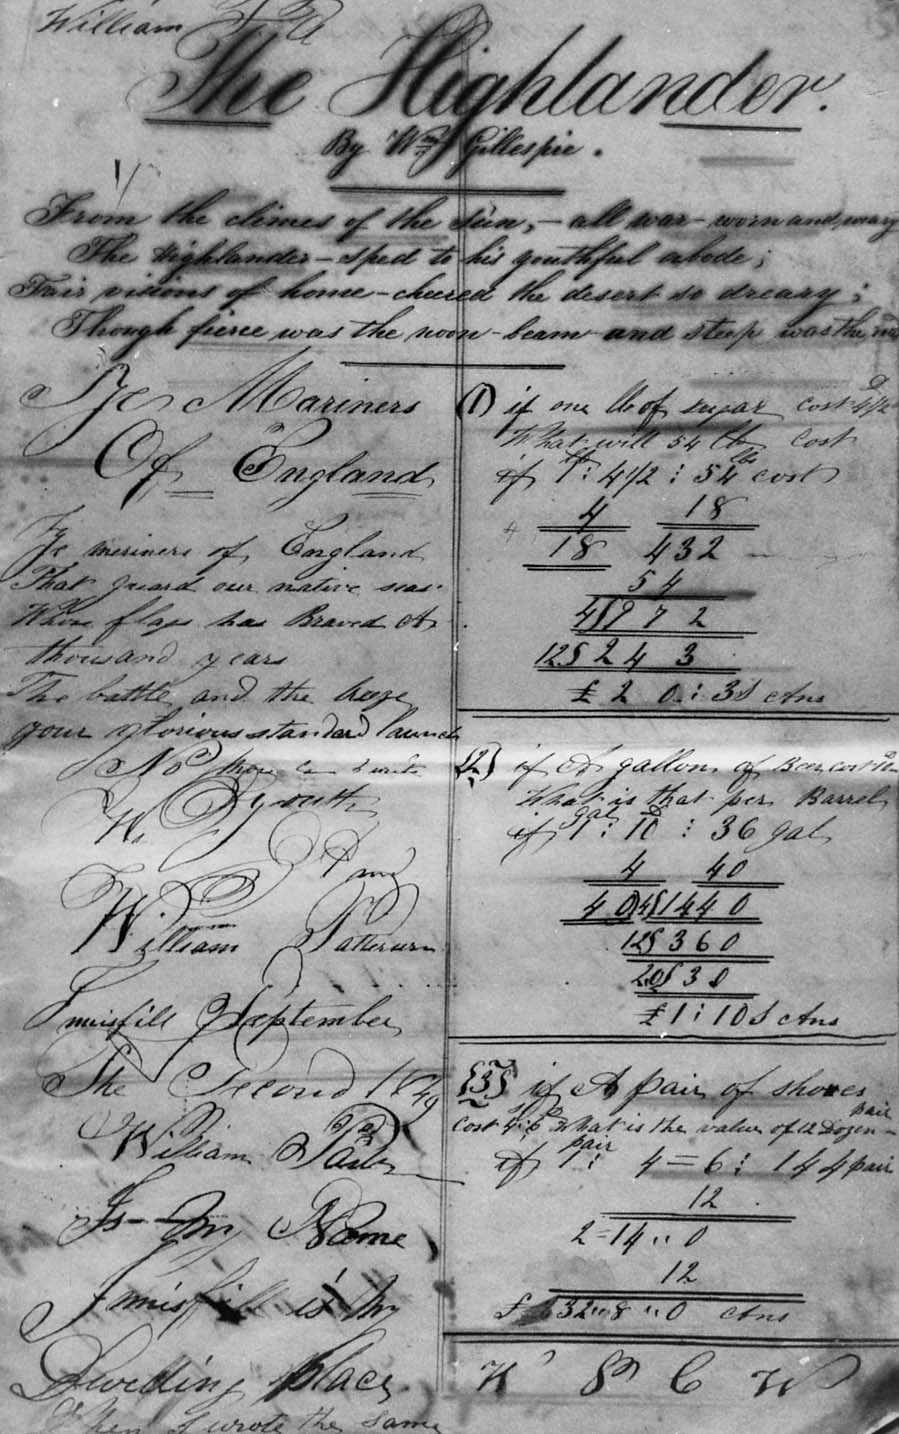 William
The Highlander.
By Wm Gillespie.
From the climes of the Sun, - all war-worn and weary
The Highlander - sped to his youthful abode;
Fair visions of home - cheered the desert so dreary;
Though fierce was the noon-beam and steep was the
Ye Mariners
Of England
Ye meriners of England
That guard our native seas
Whose flags has Braved A
thousand years
The battle and the breeze
your glorious standard launch
No more can I write
William Patterson
September
The Second 1849
William
Is My Name
is My
Dwelling place
When I wrote the same
(1) if one lb of sugar cost 4 1/2 D
What will 54 lb cost
if 1 : 4 1/2 : 54 lbs cost
4 18
18 432
54
4)972
12)243
£ 20 : 3 Ans
(2) if A gallon of Beer cost
What is that per Barrel
if 1 gal : 10 D : 36 gal
4 40
40 4)1440
12)360
20)30
£ 1 : 10 S Ans
(3) if A pair of shoes
cost 4 : 6 What is the value of 12 Dozen pair
if 1 pair : 4 = 6 : 144 pair
12
2 = 14 " 0
12
£ 32 " 8 " 0 Ans
W P C W